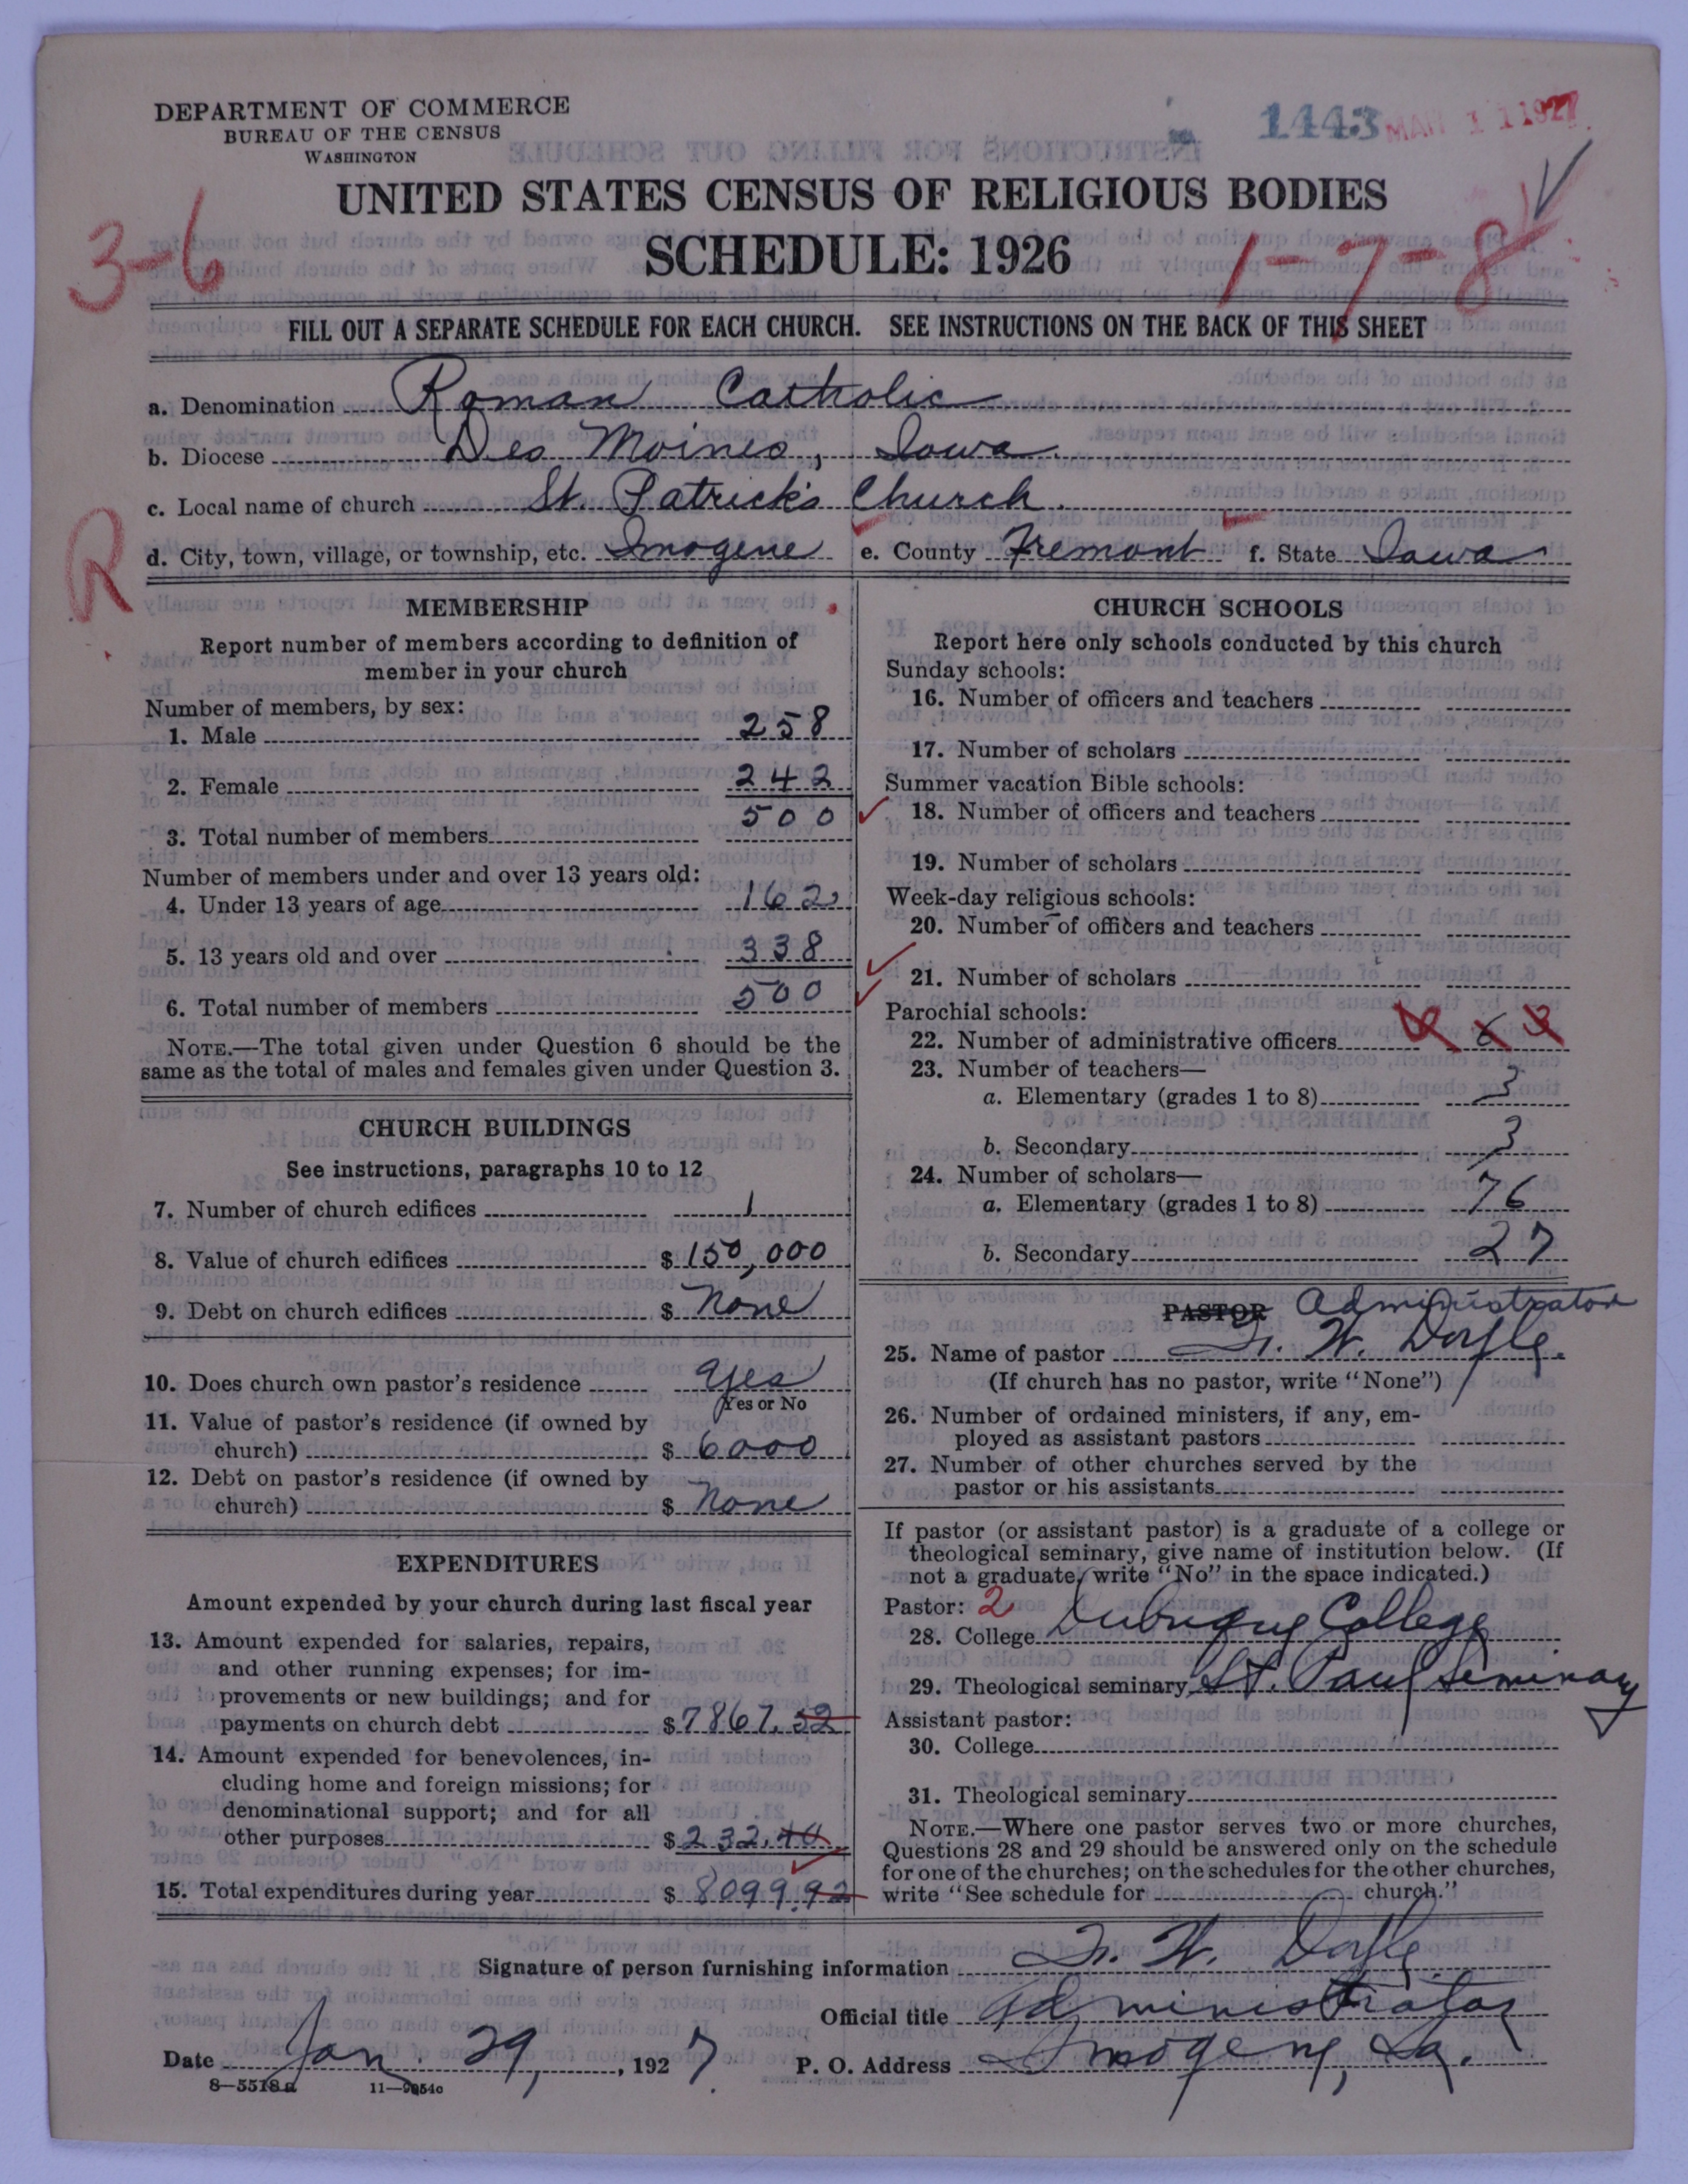 DEPARTMENT OF COMMERCE
BUREAU OF THE CENSUS
WASHINGTON
1443
MAR 11 1927
UNITED STATES CENSUS OF RELIGIOUS BODIES
SCHEDULE: 1926
3-6
1-7-8
FILL OUT A SEPARATE SCHEDULE FOR EACH CHURCH. SEE INSTRUCTIONS ON THE BACK OF THIS SHEET
a. Denomination Roman Catholic
b. Diocese Des Moines, Iowa.
c. Local name of church St. Patrick's Church.
d. City, town, village, or township, etc. Imogene e. County Fremont f. State Iowa
R
MEMBERSHIP
Report number of members according to definition of
member in your church
Number of members, by sex:
1. Male 258
2. Female 242
3. Total number of members 500
Number of members under and over 13 years old:
4. Under 13 years of age 162
5. 13 years old and over 338
6. Total number of members 500
NOTE.—The total given under Question 6 should be the
same as the total of males and females given under Question 3.
CHURCH BUILDINGS
See instructions, paragraphs 10 to 12
7. Number of church edifices 1
8. Value of church edifices $ 150,000
9. Debt on church edifices $ None
10. Does church own pastor's residence yes
Yes or No
11. Value of pastor's residence (if owned by
church) $ 6000
12. Debt on pastor's residence (if owned by
church) $ None
EXPENDITURES
Amount expended by your church during last fiscal year
13. Amount expended for salaries, repairs,
and other running expenses; for im-
provements or new buildings; and for
payments on church debt $ 7867.52
14. Amount expended for benevolences, in-
cluding home and foreign missions; for
denominational support; and for all
other purposes $ 232.40
15. Total expenditures during year $ 8099.92
CHURCH SCHOOLS
Report here only schools conducted by this church
Sunday schools:
16. Number of officers and teachers
17. Number of scholars
Summer vacation Bible schools:
18. Number of officers and teachers
19. Number of scholars
Week-day religious schools:
20. Number of officers and teachers
21. Number of scholars
Parochial schools:
22. Number of administrative officers 6
23. Number of teachers—
a. Elementary (grades 1 to 8) 3
b. Secondary 3
24. Number of scholars—
a. Elementary (grades 1 to 8) 76
b. Secondary 27
PASTOR Administrator
25. Name of pastor Fr. W. Doyle.
(If church has no pastor, write "None")
26. Number of ordained ministers, if any, em-
ployed as assistant pastors
27. Number of other churches served by the
pastor or his assistants
If pastor (or assistant pastor) is a graduate of a college or
theological seminary, give name of institution below. (If
not a graduate, write "No" in the space indicated.)
Pastor: 2
28. College Dubuque College
29. Theological seminary St. Paul Seminary
Assistant pastor:
30. College
31. Theological seminary
NOTE.—Where one pastor serves two or more churches,
Questions 28 and 29 should be answered only on the schedule
for one of the churches; on the schedules for the other churches,
write "See schedule for church."
Signature of person furnishing information Fr. W. Doyle.
Official title Administrator
Date Jan. 29, 1927 P. O. Address Imogene, Ia.
8—5518a 11—9054c